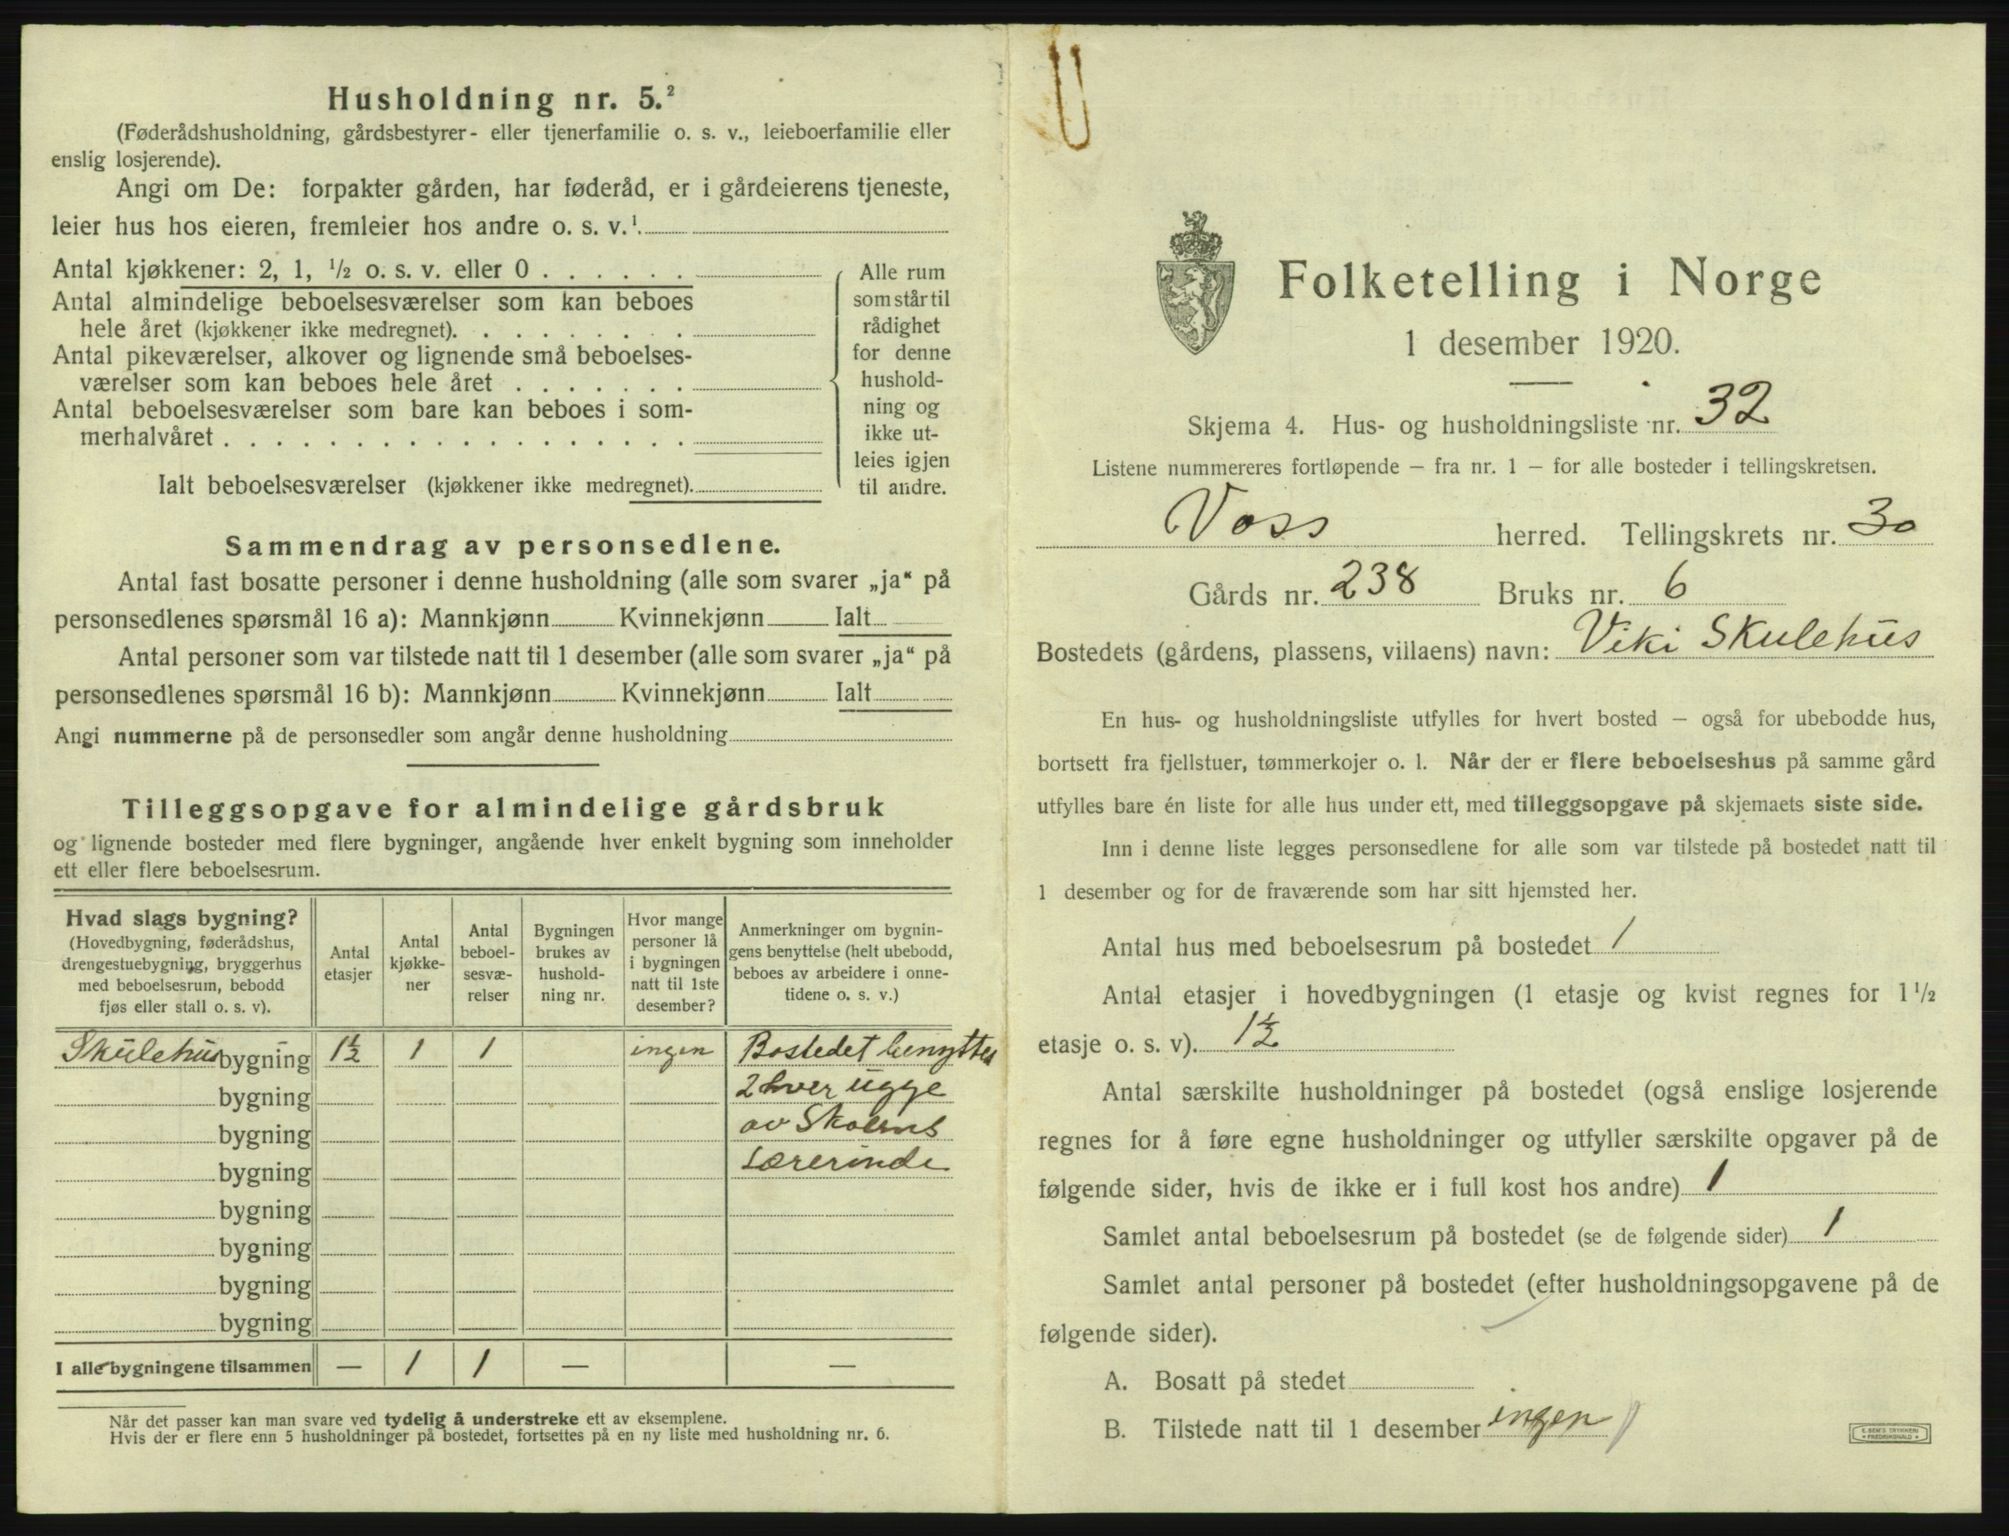 Husholdning nr. 5.²
(Føderådshusholdning, gårdsbestyrer- eller tjenerfamilie o. s. v., leieboerfamilie eller
enslig losjerende).
Angi om De: forpakter gården, har føderåd, er i gårdeierens tjeneste,
leier hus hos eieren, fremleier hos andre o. s. v.¹
Antal kjøkkener: 2, 1, ½ o. s. v. eller 0 . . . . . .
Antal almindelige beboelsesværelser som kan beboes
hele året (kjøkkener ikke medregnet). . . . . . . . .
Antal pikeværelser, alkover og lignende små beboelses-
værelser som kan beboes hele året . . . . . . .
Antal beboelsesværelser som bare kan beboes i som-
merhalvåret . . . . . . . . . . . . . . . . . .
Ialt beboelsesværelser (kjøkkener ikke medregnet).
Alle rum
som står til
rådighet
for denne
hushold-
ning og
ikke ut-
leies igjen
til andre.
Sammendrag av personsedlene.
Antal fast bosatte personer i denne husholdning (alle som svarer „ja“ på
personsedlenes spørsmål 16 a): Mannkjønn Kvinnekjønn Ialt
Antal personer som var tilstede natt til 1 desember (alle som svarer „ja“ på
personsedlenes spørsmål 16 b): Mannkjønn Kvinnekjønn Ialt
Angi nummerne på de personsedler som angår denne husholdning
Tilleggsopgave for almindelige gårdsbruk
og lignende bosteder med flere bygninger, angående hver enkelt bygning som inneholder
ett eller flere beboelsesrum.
Hvad slags bygning?
(Hovedbygning, føderådshus,
drengestuebygning, bryggerhus
med beboelsesrum, bebodd
fjøs eller stall o. s. v).
Antal
etasjer
Antal
kjøkke-
ner
Antal
beboel-
sesvæ-
relser
Bygningen
brukes av
hushold-
ning nr.
Hvor mange
personer lå
i bygningen
natt til 1ste
desember?
Anmerkninger om bygnin-
gens benyttelse (helt ubebodd,
beboes av arbeidere i onne-
tidene o. s. v.)
Skulehus bygning 1½ 1 1 ingen Bostedet benyttes
bygning 2hver ugge
bygning av Skolens
bygning Lærerinde
bygning
bygning
bygning
bygning
I alle bygningene tilsammen — 1 1 — —
Når det passer kan man svare ved tydelig å understreke ett av eksemplene.
Hvis der er flere enn 5 husholdninger på bostedet, fortsettes på en ny liste med husholdning nr. 6.
Folketelling i Norge
1 desember 1920.
Skjema 4. Hus- og husholdningsliste nr. 32
Listene nummereres fortløpende – fra nr. 1 – for alle bosteder i tellingskretsen.
Voss herred. Tellingskrets nr. 30
Gårds nr. 238 Bruks nr. 6
Bostedets (gårdens, plassens, villaens) navn: Viki Skulehus
En hus- og husholdningsliste utfylles for hvert bosted – også for ubebodde hus,
bortsett fra fjellstuer, tømmerkojer o. l. Når der er flere beboelseshus på samme gård
utfylles bare én liste for alle hus under ett, med tilleggsopgave på skjemaets siste side.
Inn i denne liste legges personsedlene for alle som var tilstede på bostedet natt til
1 desember og for de fraværende som har sitt hjemsted her.
Antal hus med beboelsesrum på bostedet 1
Antal etasjer i hovedbygningen (1 etasje og kvist regnes for 1½
etasje o. s. v). 1½
Antal særskilte husholdninger på bostedet (også enslige losjerende
regnes for å føre egne husholdninger og utfyller særskilte opgaver på de
følgende sider, hvis de ikke er i full kost hos andre) 1
Samlet antal beboelsesrum på bostedet (se de følgende sider) 1
Samlet antal personer på bostedet (efter husholdningsopgavene på de
følgende sider).
A. Bosatt på stedet
B. Tilstede natt til 1 desember ingen